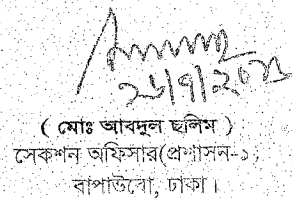 ২৬/৭/২০১১
( মোঃ আবদুল ছালিম )
সেকশন অফিসার(প্রশাসন-১)
বাপাউবো, ঢাকা।